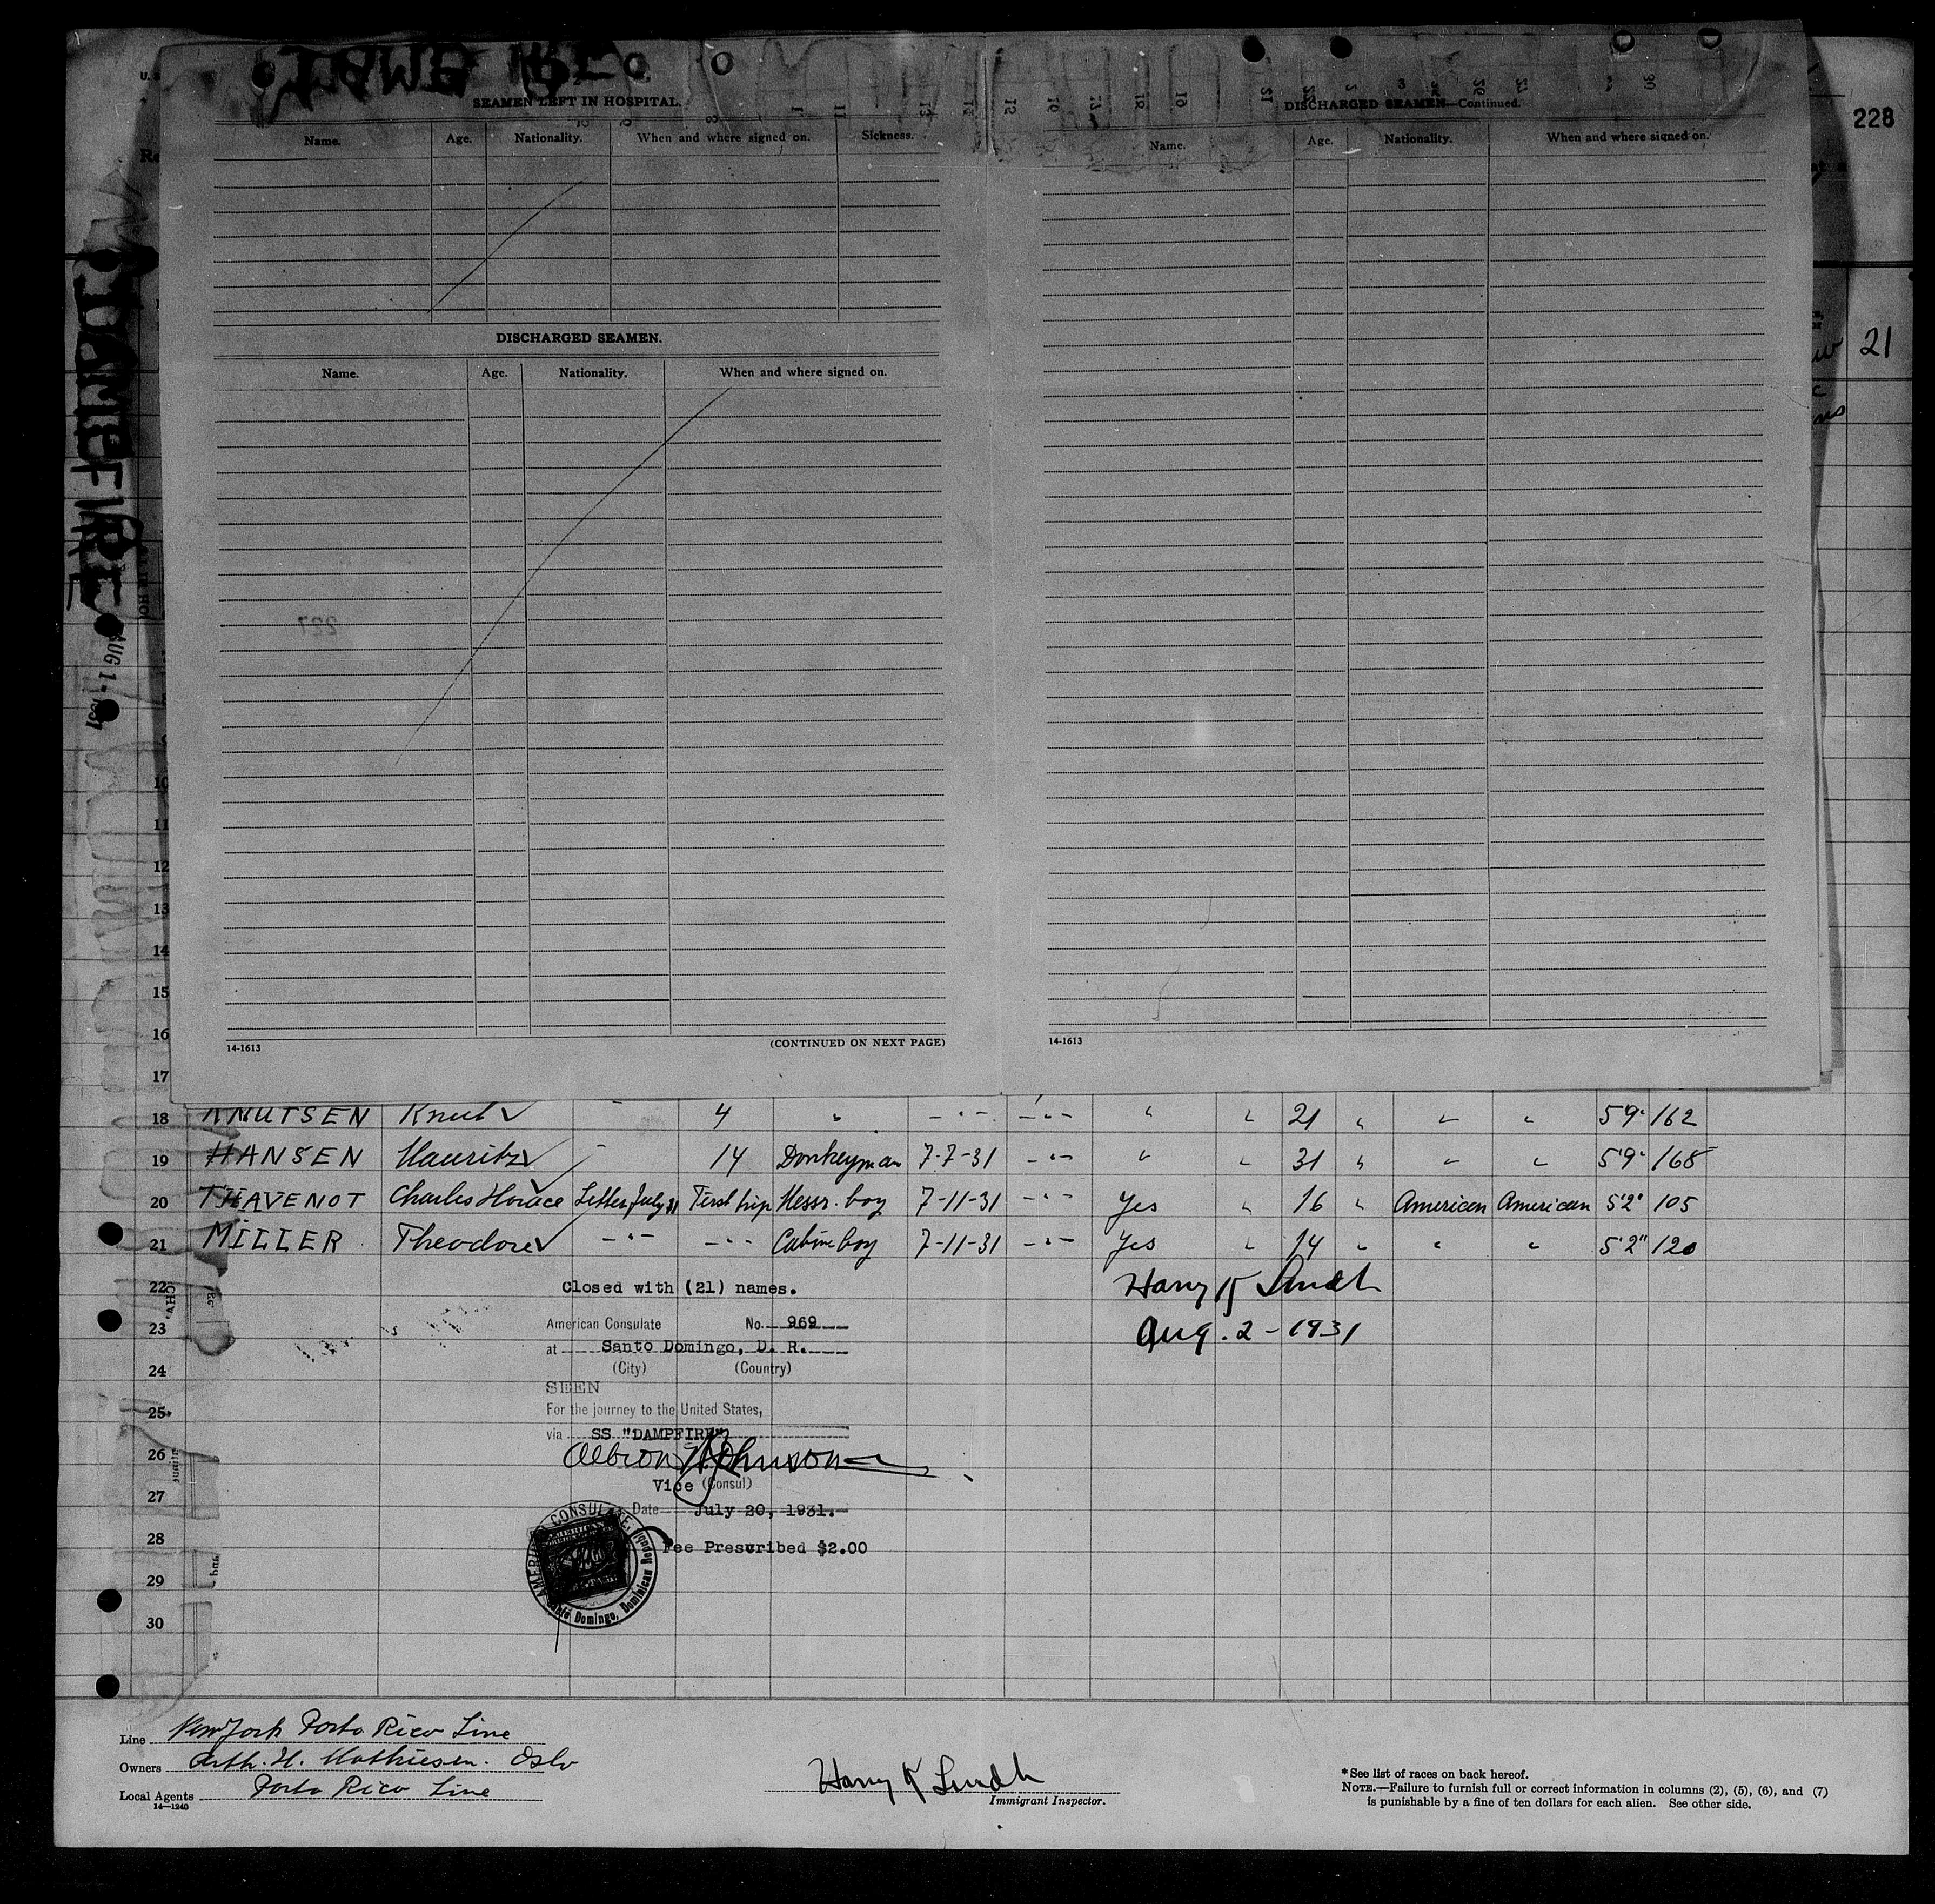 228
SEAMEN LEFT IN HOSPITAL.
Name. Age. Nationality. When and where signed on. Sickness.
DISCHARGED SEAMEN.
Name. Age. Nationality. When and where signed on.
14-1613 (CONTINUED ON NEXT PAGE)
DISCHARGED SEAMEN—Continued.
Name. Age. Nationality. When and where signed on.
14-1613
21
DAMPFIRE
AUG 1-1931
227
10
11
12
13
14
15
16
17
18 KNUTSEN Knut 4 " -"- -"- " " 21 " " " 5'9" 162
19 HANSEN Mauritz 14 Donkeyman 7-7-31 -"- " " 31 " " " 5'9" 168
20 THAVENOT Charles Horace Letter July 31 First trip Messr. boy 7-11-31 -"- Yes " 16 " American American 5'2" 105
21 MILLER Theodore -"- -"- Cabin boy 7-11-31 -"- Yes " 14 " " " 5'2" 120
22 Closed with (21) names. Harry K Lindh
23 American Consulate No. 969 Aug. 2 - 1931
at Santo Domingo, D. R.
24 (City) (Country)
SEEN
25 For the journey to the United States,
via SS "DAMPFIRE"
26 Albion W Johnson
Vice (Consul)
27 Date July 20, 1931.
28 Fee Prescribed $2.00
AMERICAN CONSULATE, Santo Domingo, Dominican Republic
29
30
Line New York Porto Rico Line
Owners Arth. H. Mathiesen. Oslo
Local Agents Porto Rico Line
14—1240
Harry K Lindh
Immigrant Inspector.
*See list of races on back hereof.
NOTE.—Failure to furnish full or correct information in columns (2), (5), (6), and (7)
is punishable by a fine of ten dollars for each alien. See other side.